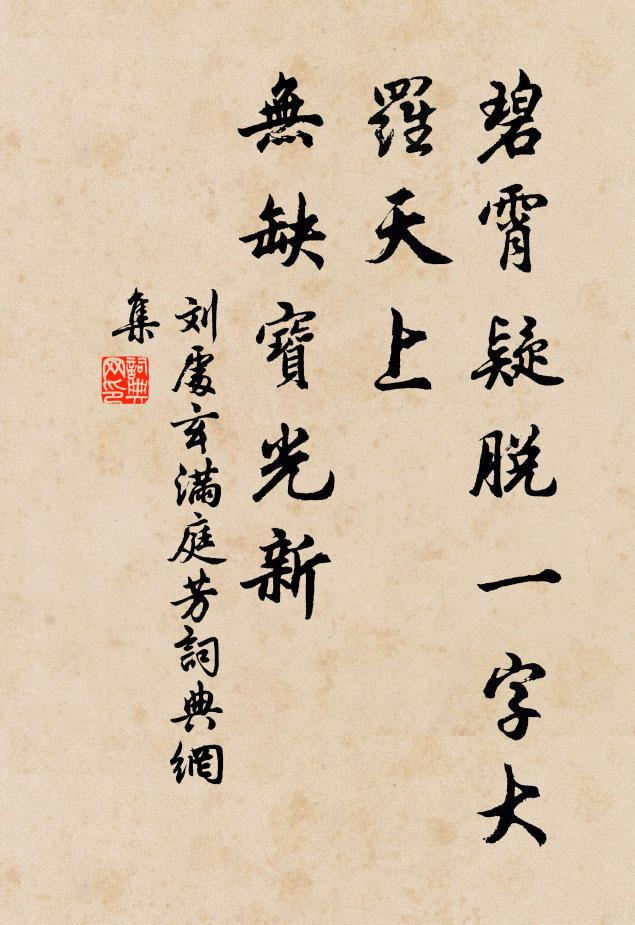 碧霄疑脱一字大
羅天上
無缺寶光新
刘處玄滿庭芳詞典網
集
詞典
网印